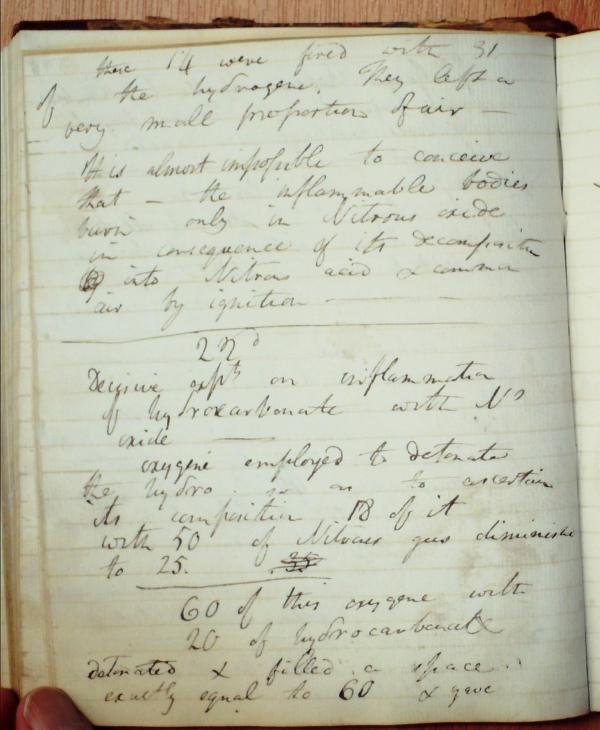 these 14 were fired with 31
of the hydrogene. They left a
very small proportion of air —
It is almost impossible to conceive
that — the inflammable bodies
burn only in Nitrous oxide
in consequence of its decomposition
into Nitrous acid & common
air by ignition —
2nd
Decisive expts on inflammation
of hydrocarbonate with Ns
oxide
oxygene employed to detonate
the hydro so as to ascertain
its composition 18 of it
with 50 of Nitrous gas diminishd
to 25.
60 of this oxygene with
20 of hydrocarbonate
detonated & filled a space
exactly equal to 60 & gave